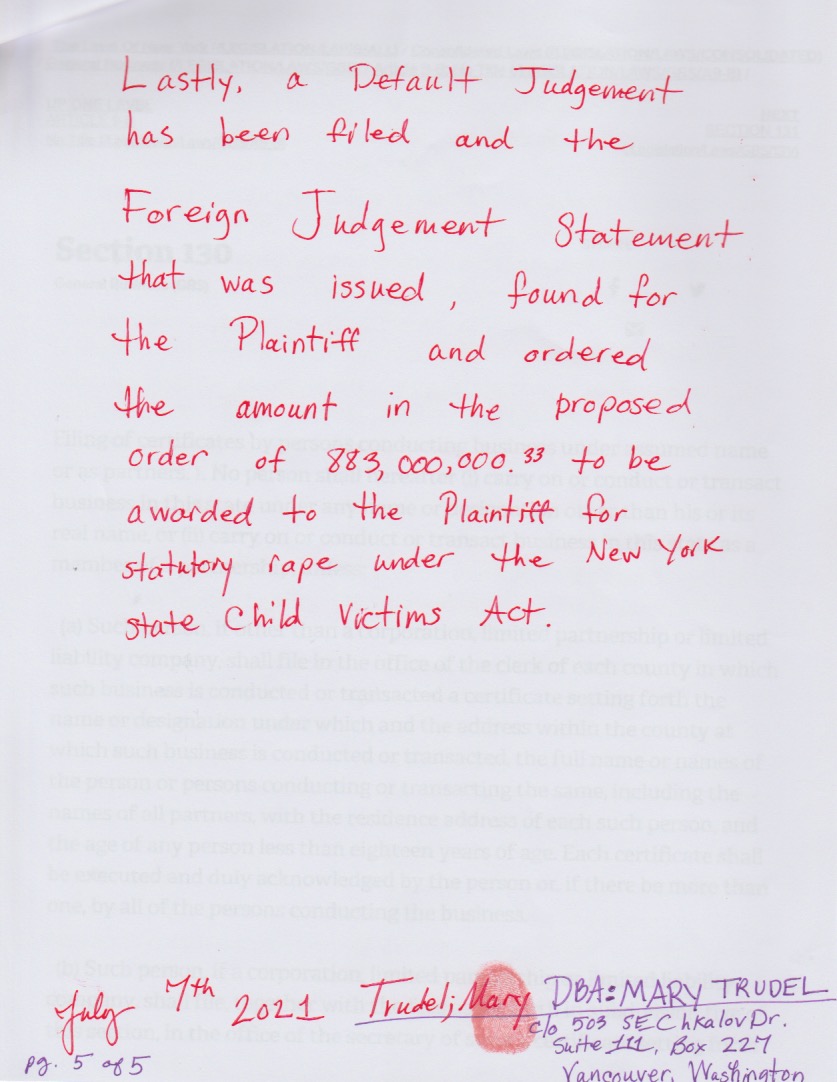 Lastly, a Default Judgement
has been filed and the
Foreign Judgement Statement
that was issued, found for
the Plaintiff and ordered
the amount in the proposed
order of 883,000,000.33 to be
awarded to the Plaintiff for
statutory rape under the New York
state Child Victims Act.
Section 130
Filing of certificates by persons conducting business under assumed name
or as partners. 1. No person shall
(a) Such person, if other than a corporation, limited partnership or limited
liability company, shall file in the office of the clerk of each county in which
such business is conducted or transacted a certificate setting forth the
name or designation under which and the address within the county at
which such business is conducted or transacted, the full name or names of
the person or persons conducting or transacting the same, including the
names of all partners, with the residence address of each such person, and
the age of any person less than eighteen years of age. Each certificate shall
be executed and duly acknowledged by the person or, if there be more than
one, by all of the persons conducting the business.
(b) Such person, if a corporation, limited
July 7th 2021 Trudel; Mary DBA: MARY TRUDEL
c/o 503 SE Chkalov Dr.
Suite 111, Box 227
Vancouver, Washington
pg. 5 of 5